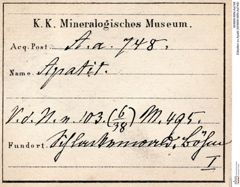 K. K. Mineralogisches Museum.
Acq. Post. A. a. 748.
Name. Apatit.
V. d. N. n. 103. (6/38) M. 495.
Fundort. Schlackenwald, Böhm
I